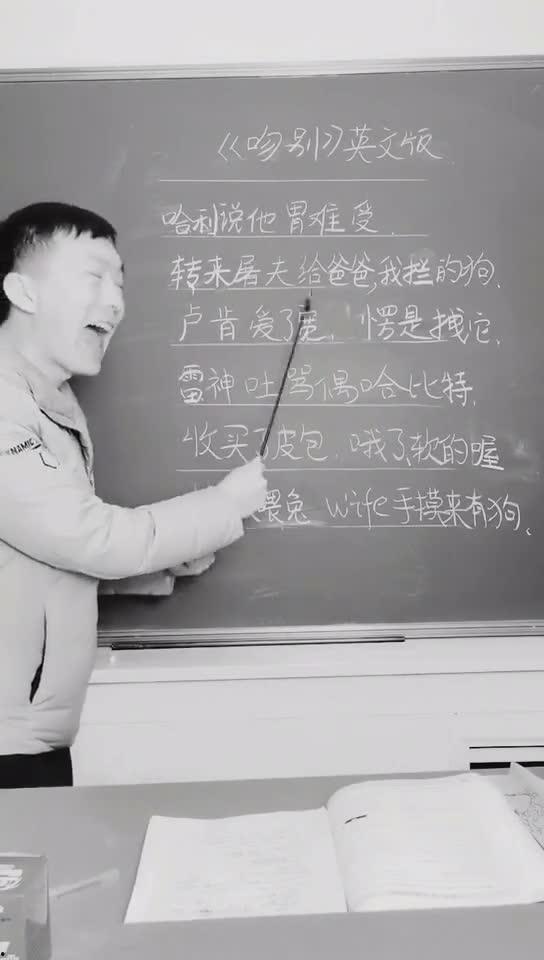 《吻别》英文版
哈利说他胃难受.
转来屠夫给爸爸,我拦的狗.
卢肯爱了宽, 愣是拽它.
雷神吐骂偶哈比特.
收买了皮包.哦了,软的喔
喂兔 wife手摸来有狗.
NAMIC